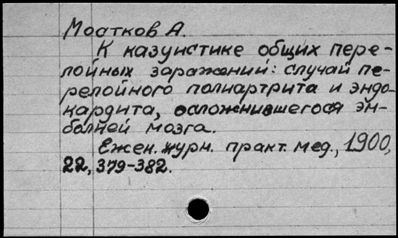 Мостков А.
К казуистике общих пере-
лойных заражений: случай пе-
релойного полиартрита и эндо-
кардита, осложнившегося эм-
болией мозга.
Ежен. журн. практ. мед., 1900,
22, 379-382.